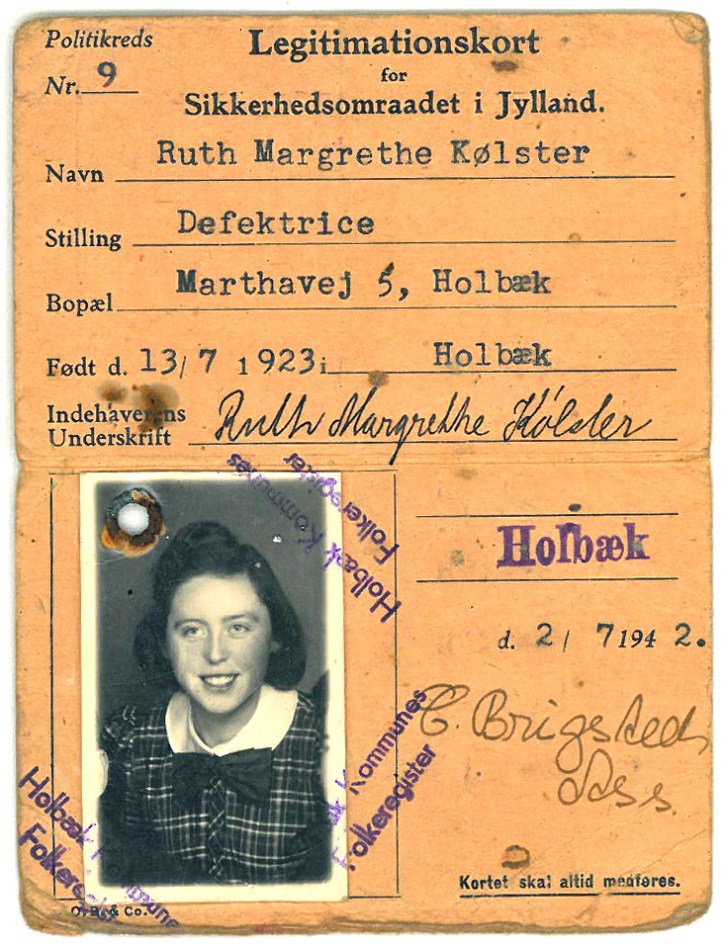 Politikreds
Nr. 9
Legitimationskort
for
Sikkerhedsomraadet i Jylland.
Navn Ruth Margrethe Kølster
Stilling Defektrice
Bopæl Marthavej 5, Holbæk
Født d. 13/ 7 1923 i Holbæk
Indehaverens
Underskrift Ruth Margrethe Kølster
Holbæk Kommunes
Folkeregister
Holbæk
d. 2/ 7 1942.
C. Brigsted
Ass.
Kommunes
Folkeregister
Holbæk Kommune
Folkere
Kortet skal altid medføres.
& Co.